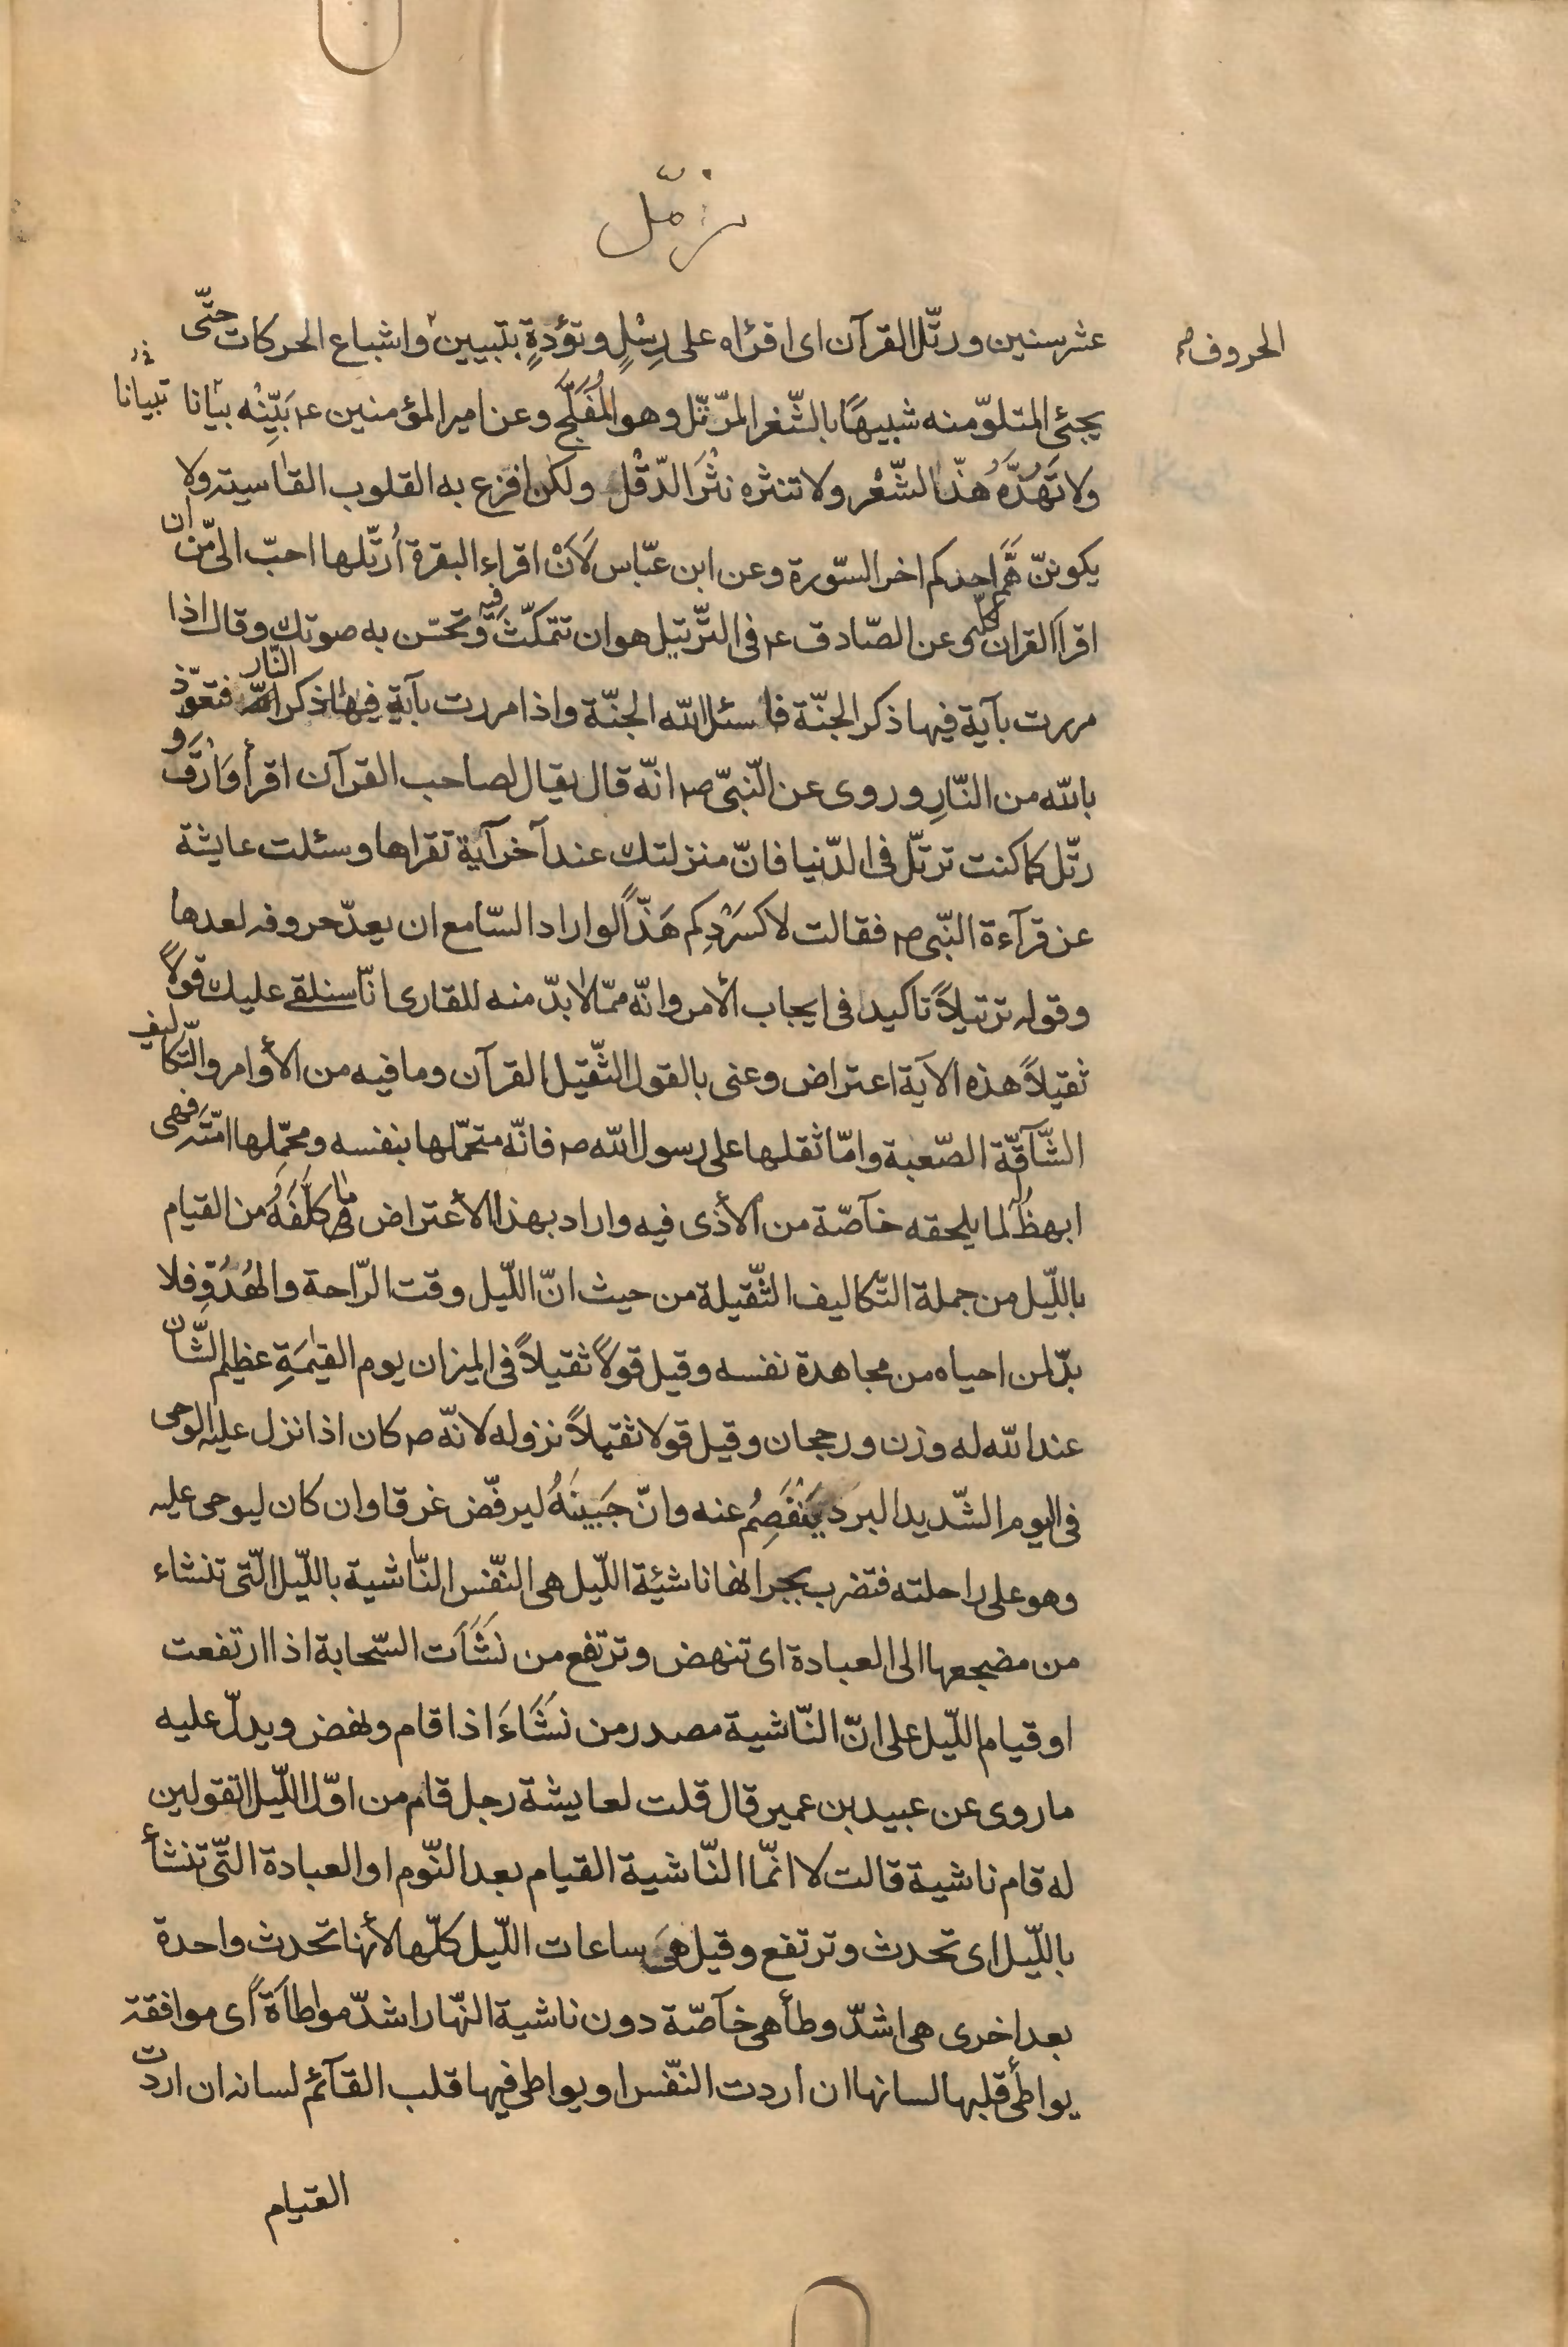 مزّمّل
عشر سنين ورتّل القرآن اى اقرئاه على رِسْلٍ وتؤدةٍ بتبيين واشباع الحركات حتّى
الحروف
يجئ المتلوّ منه شبيهًا بالثّغر المرتّل وهو المُفَلَّج وعن امير المؤمنين ع بَيِّنْه بيانا
تبيانا
ولا تَهُذَّهُ هذّ الشّعْر ولا تنثره نثْرَ الدّقْل ولكن اقرع به القلوب القاسية ولا
يكوننّ هَمُّ احدكم اخر السّورة وعن ابن عبّاس لَأَنْ اقراء البقرة اُرتّلها احبّ الىّ من ان
اقرا القران كلّه وعن الصّادق ع فى التّرتيل هو ان تتمكّث فيه وتحسّن به صوتك وقال اذا
مررت بآية فيها ذكر الجنّة فاسئل الله الجنّة واذا مررت بآية فيها ذكر النّار فتعوّذ
بالله من النّارِ وروى عن النّبىّ ص انّه قال يقال لصاحب القرآن اقرأ وَارْقَ و
رتّل كما كنت ترتّل فى الدّنيا فانّ منزلتك عند آخر آية تقراها وسئلت عايشة
عن قرآءة النّبى ص فقالت لا كسَرْدِكم هَذّاً لو اراد السّامع ان يعدّ حروفه لعدها
وقوله ترتيلاً تاكيد فى ايجاب الأمر وانّه ممّا لابدّ منه للقارى انّا سنلقى عليك قولاً
ثقيلاً هذه الآية اعتراض وعنى بالقول الثّقيل القرآن وما فيه من الأوامر والتّكاليف
الشّآقّة الصّعبة وامّا ثقلها على رسول الله ص فانّه متحمّلها بنفسه ومحمّلها امّته فهى
ابهظُ لما يلحقه خآصّة من الأذى فيه واراد بهذا الأعتراض ما كلّفَهُ من القيام
باللّيل من جملة التّكاليف الثّقيلة من حيث انّ اللّيل وقت الرّاحة والهُدُوِّ فلا
بدّ لمن احياه من مجاهدة نفسه وقيل قولاً ثقيلاً فى الميزان يوم القيمَةِ عظيم الشّان
عند الله له وزن ورجحان وقيل قولا ثقيلاً نزوله لانّه ص كان اذا نزل عليه الوحى
فى اليوم الشّديد البرد يَنْفَصِمُ عنه وانّ جَبِينَهُ ليرفّض غرقا وان كان ليوحى عليه
وهو على راحلته فتضرب بجرانها ناشئة اللّيل هى النّفس النّاشية باللّيل الّتى تنشاء
من مضجعها الى العبادة اى تنهض وترتفع من نَشَأَت السّحابة اذا ارتفعت
او قيام اللّيل على انّ النّاشية مصدر من نَشَاءَ اذا قام ونهض ويدلّ عليه
ما روى عن عبيد بن عمير قال قلت لعايشة رجل قام من اوّل اللّيل اتقولين
له قام ناشية قالت لا انّما النّاشية القيام بعد النّوم او العبادة الّتى تنشأ
باللّيل اى تحدث وترتفع وقيل هى ساعات اللّيل كلّها لأنها تحدث واحدة
بعد اخرى هى اشدّ وطأ هى خآصّة دون ناشية النّهار اشدّ مواطاَةً اى موافقة
يواطئ قلبها لسانها ان اردت النّفس او يواطى فيها قلب القآئم لسانه ان اردت
القيام